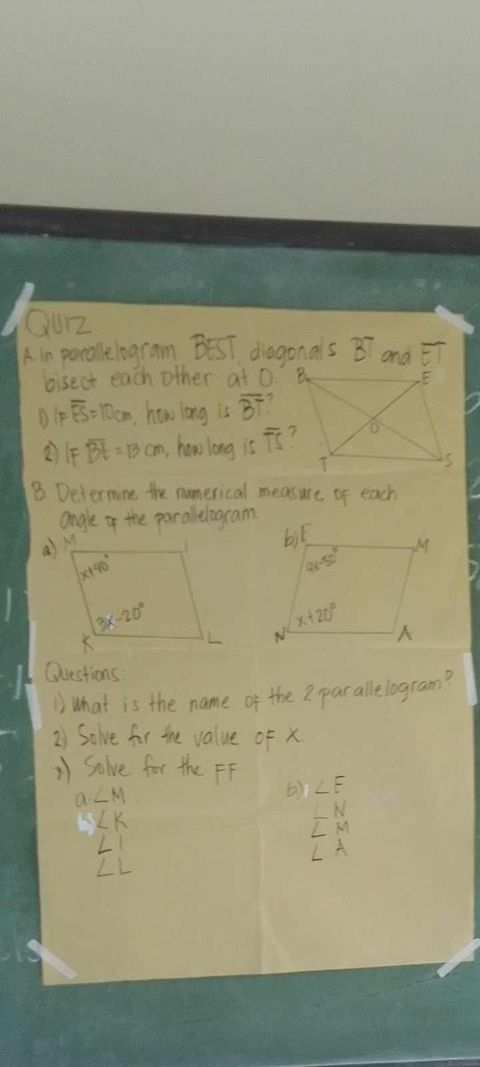 QUIZ
A. In parallelogram BEST, diagonals BT and ET
bisect each other at O.
B
E
O
T
S
1) IF ES=10cm, how long is BT?
2) IF BE=13 cm, how long is TS?
B. Determine the numerical measure of each
angle of the parallelogram.
a) M
I
x+40°
3x-20°
K
L
b) E
M
x+20°
N
A
Questions:
1) What is the name of the 2 parallelogram?
2) Solve for the value of x
3) Solve for the FF
a. ∠M
b) ∠K
∠I
∠L
b) ∠E
∠N
∠M
∠A